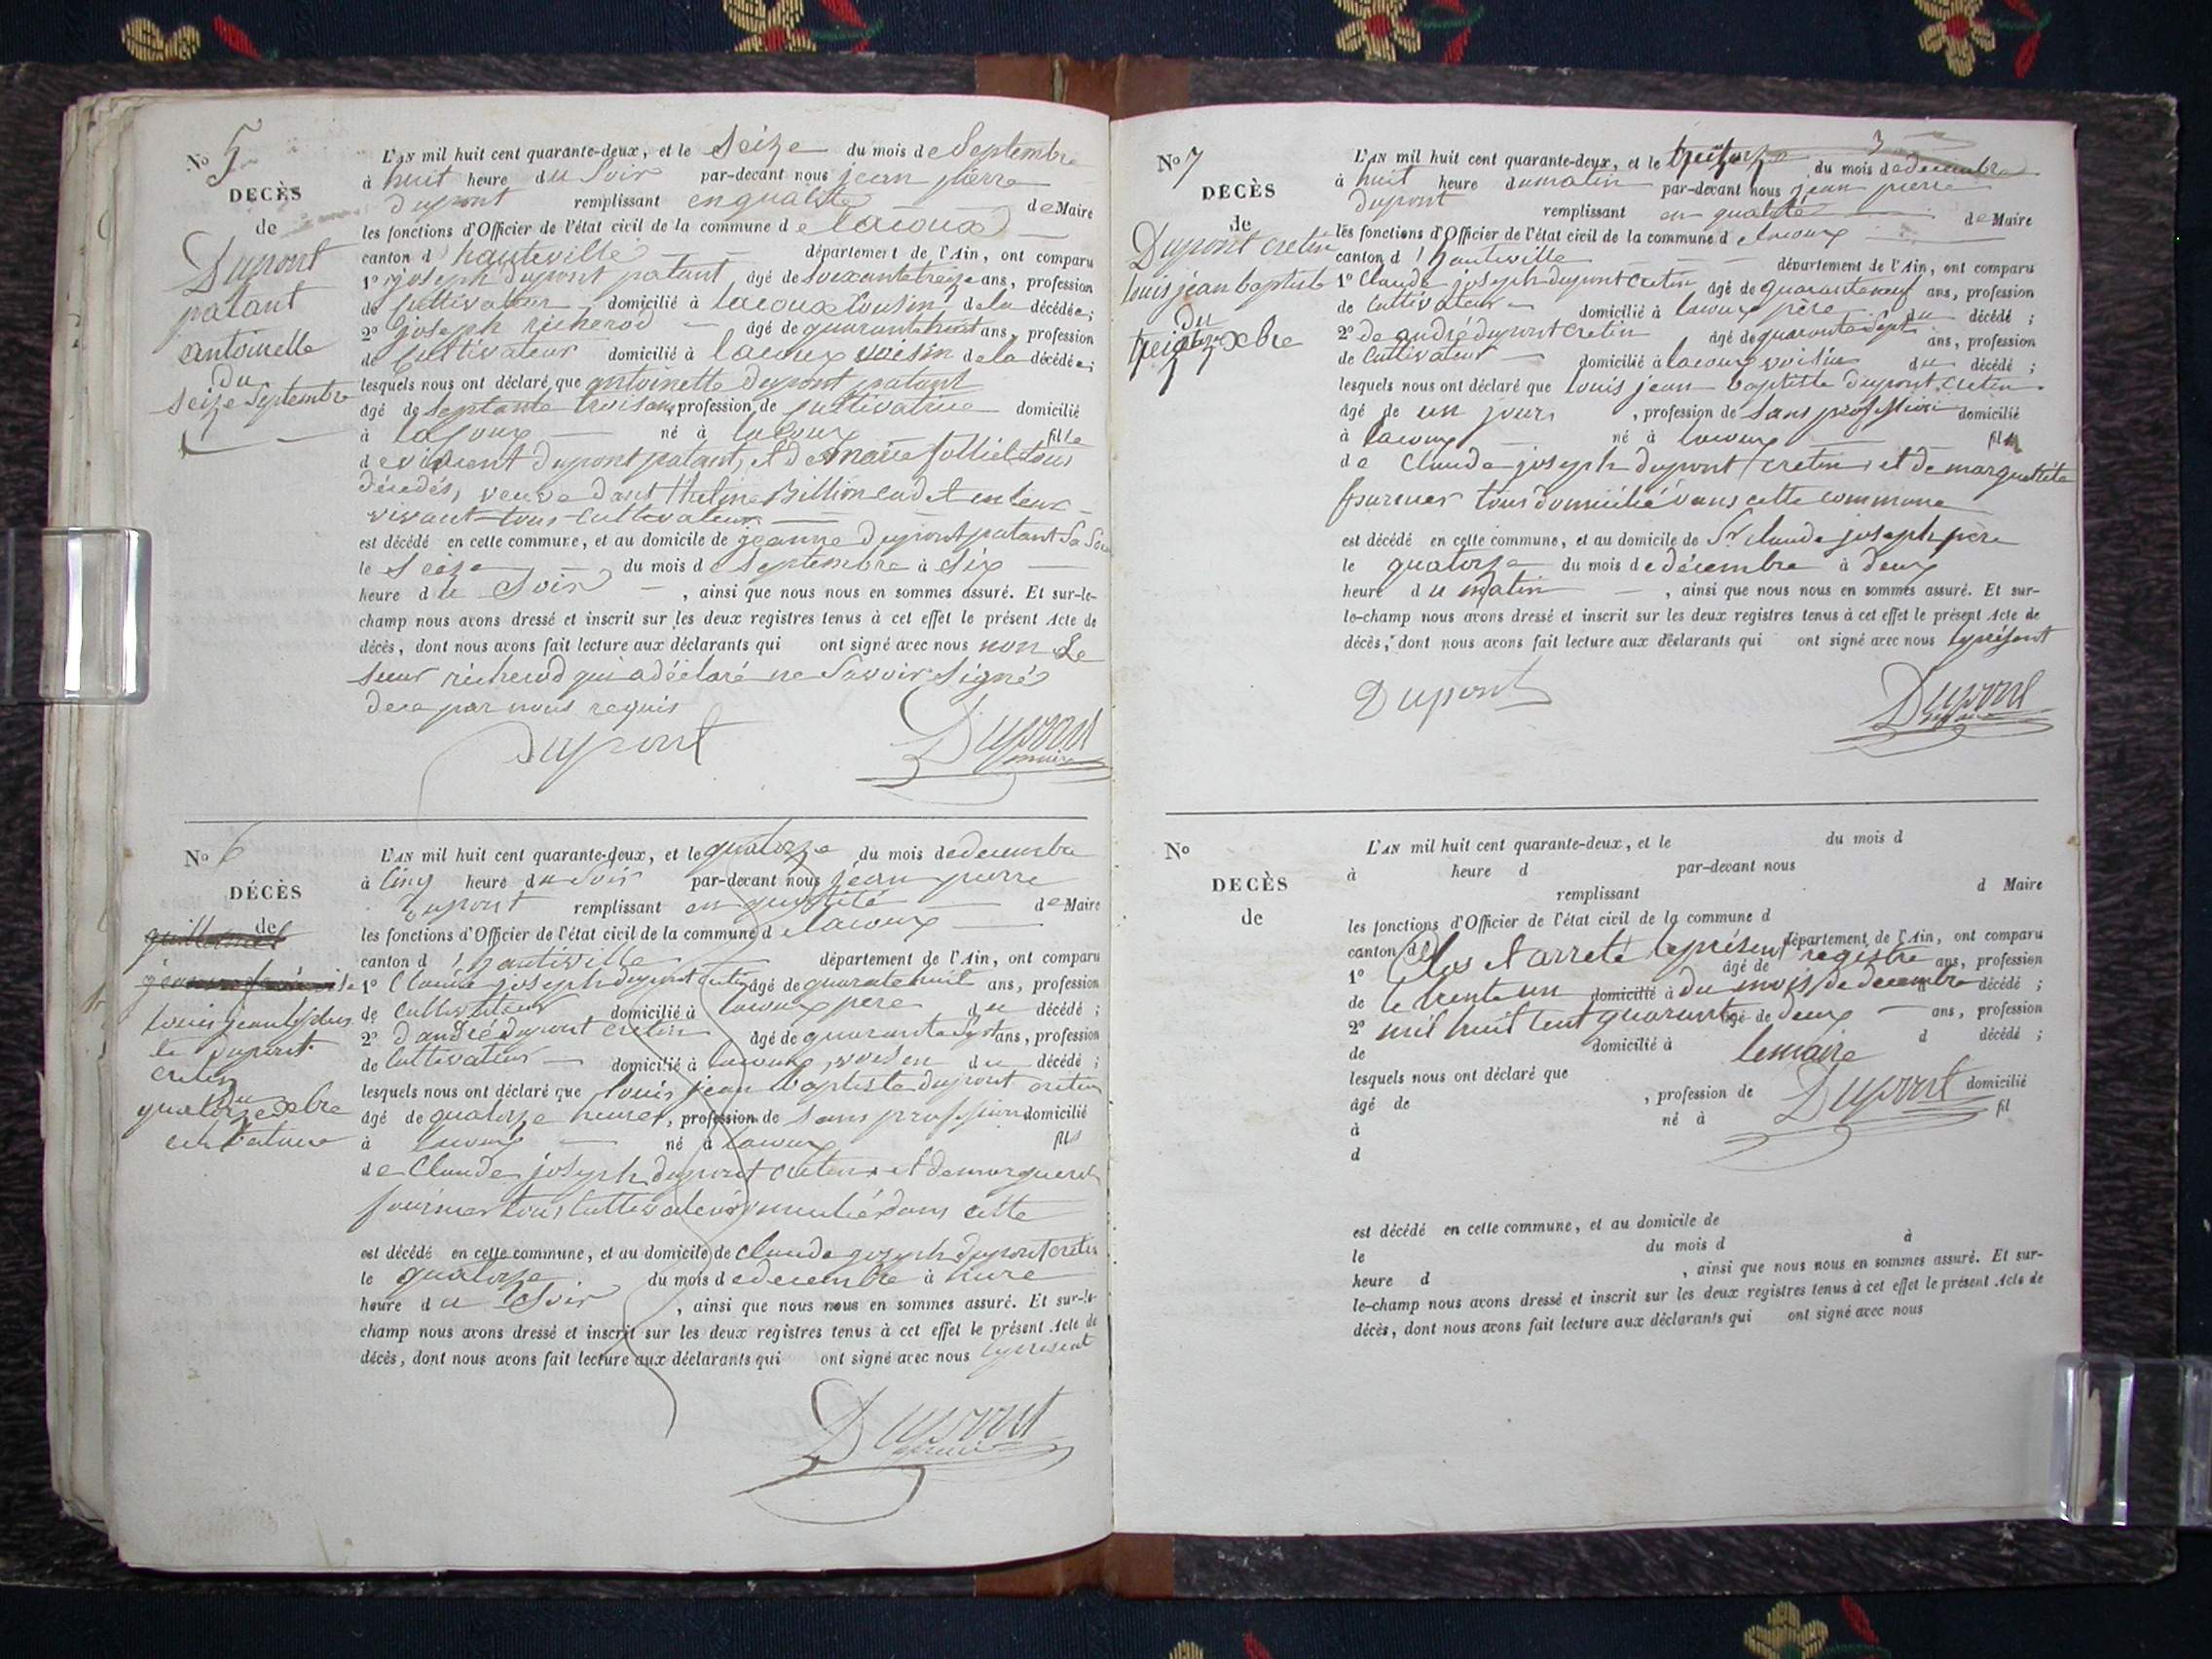 No 5
DECÈS
de
Dupont
patant
antoinette
du
seize Septembre
L'AN mil huit cent quarante-deux, et le Seize du mois de Septembre
à huit heure du Soir par-devant nous jean pierre
dupont remplissant en qualité de Maire
les fonctions d'Officier de l'état civil de la commune de lacoux
canton d hauteville département de l'Ain, ont comparu
1o joseph dupont patant âgé de soixante treize ans, profession
de Cultivateur domicilié à lacoux Cousin de la décédée;
2o joseph richerod âgé de quarante huit ans, profession
de Cultivateur domicilié à lacoux voisin de la décédée;
lesquels nous ont déclaré que antoinette dupont patant
âgé de septante trois ans, profession de cultivatrice domicilié
à lacoux né à lacoux fille
de vincent dupont patant, et de marie tous
décédés, veuve Billion cadet en leur
vivant tous cultivateur
est décédé en cette commune, et au domicile de jeanne dupont patant sa
le seize du mois de Septembre à Six
heure du Soir, ainsi que nous nous en sommes assuré. Et sur-le-
champ nous avons dressé et inscrit sur les deux registres tenus à cet effet le présent Acte de
décès, dont nous avons fait lecture aux déclarants qui ont signé avec nous non Le
sieur richerod qui a déclaré ne Savoir Signé
de ce par nous requis
Dupont
Dupont
maire
No 6
DÉCÈS
de
louis jean baptis
te dupont
cretin
du
quatorze xbre
L'AN mil huit cent quarante-deux, et le quatorze du mois de decembre
à Cinq heure du Soir par-devant nous jean pierre
Dupont remplissant en qualité de Maire
les fonctions d'Officier de l'état civil de la commune de lacoux
canton d hauteville département de l'Ain, ont comparu
1o Claude joseph dupont cretin âgé de quarante huit ans, profession
de Cultivateur domicilié à lacoux pere du décédé;
2o d'andré dupont cretin âgé de quarante sept ans, profession
de Cultivateur domicilié à lacoux, voisin du décédé;
lesquels nous ont déclaré que louis jean baptiste dupont cretin
âgé de quatorze heures, profession de sans profession domicilié
à lacoux né à lacoux fils
de Claude joseph dupont cretin et de marguerite
fournier tous cultivateurs domicilié dans cette
est décédé en cette commune, et au domicile de claude joseph dupont cretin
le quatorze du mois de decembre à
heure du Soir, ainsi que nous nous en sommes assuré. Et sur-le-
champ nous avons dressé et inscrit sur les deux registres tenus à cet effet le présent Acte de
décès, dont nous avons fait lecture aux déclarants qui ont signé avec nous le présent
Dupont
maire
No 7
DECÈS
de
Dupont cretin
louis jean baptiste
du
xbre
L'AN mil huit cent quarante-deux, et le du mois de decembre
à huit heure du matin par-devant nous jean pierre
dupont remplissant en qualité de Maire
les fonctions d'Officier de l'état civil de la commune d elacoux
canton d hauteville département de l'Ain, ont comparu
1o Claude joseph dupont cretin âgé de quarante neuf ans, profession
de Cultivateur domicilié à lacoux père du décédé;
2o de andré dupont cretin âgé de quarante sept ans, profession
de Cultivateur domicilié à lacoux voisin du décédé;
lesquels nous ont déclaré que louis jean baptiste dupont cretin
âgé de un jours, profession de Sans profession domicilié
à lacoux né à lacoux fils
de Claude joseph dupont cretin et de marguerite
fournier tous domicilié dans cette commune
est décédé en cette commune, et au domicile de Sr Claude joseph père
le quatorze du mois de décembre à deux
heure du matin, ainsi que nous nous en sommes assuré. Et sur-
le-champ nous avons dressé et inscrit sur les deux registres tenus à cet effet le présent Acte de
décès, dont nous avons fait lecture aux déclarants qui ont signé avec nous le présent
Dupont
Dupont
maire
No
DECÈS
de
L'AN mil huit cent quarante-deux, et le du mois d
à heure d par-devant nous
remplissant d Maire
les fonctions d'Officier de l'état civil de la commune d
canton d département de l'Ain, ont comparu
Clos et arreté le présent registre
1o âgé de ans, profession
le trente un du mois de decembre
de domicilié à décédé;
mil huit cent quarante deux
2o âgé de ans, profession
de domicilié à d décédé;
le maire
lesquels nous ont déclaré que
Dupont
âgé de , profession de domicilié
à né à fil
d
est décédé en cette commune, et au domicile de
le du mois d à
heure d , ainsi que nous nous en sommes assuré. Et sur-
le-champ nous avons dressé et inscrit sur les deux registres tenus à cet effet le présent Acte de
décès, dont nous avons fait lecture aux déclarants qui ont signé avec nous